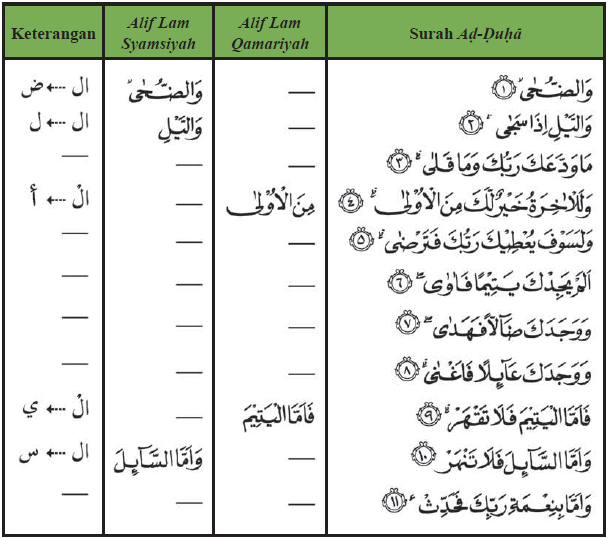 Keterangan Alif Lam Syamsiyah Alif Lam Qamariyah Surah Aḍ-Ḍuḥā
ال ⇠ ض وَالضُّحٰىۙ — وَالضُّحٰىۙ ١
ال ⇠ ل وَالَّيْلِ — وَالَّيْلِ اِذَا سَجٰىۙ ٢
— — — مَا وَدَّعَكَ رَبُّكَ وَمَا قَلٰىۗ ٣
الْ ⇠ أ — مِنَ الْاُوْلٰى وَلَلْاٰخِرَةُ خَيْرٌ لَّكَ مِنَ الْاُوْلٰىۗ ٤
— — — وَلَسَوْفَ يُعْطِيْكَ رَبُّكَ فَتَرْضٰىۗ ٥
— — — اَلَمْ يَجِدْكَ يَتِيْمًا فَاٰوٰىۖ ٦
— — — وَوَجَدَكَ ضَاۤلًّا فَهَدٰىۖ ٧
— — — وَوَجَدَكَ عَاۤىِٕلًا فَاَغْنٰىۗ ٨
الْ ⇠ ي — فَاَمَّا الْيَتِيْمَ فَاَمَّا الْيَتِيْمَ فَلَا تَقْهَرْۗ ٩
ال ⇠ س وَاَمَّا السَّاۤىِٕلَ — وَاَمَّا السَّاۤىِٕلَ فَلَا تَنْهَرْۗ ١٠
— — — وَاَمَّا بِنِعْمَةِ رَبِّكَ فَحَدِّثْ ١١